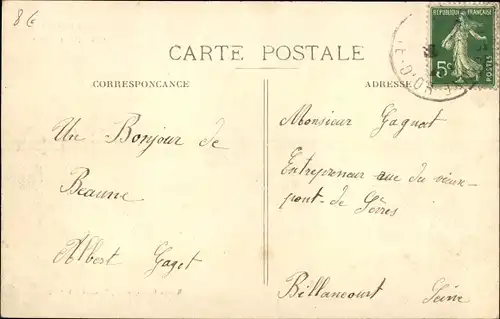 8 €
RÉPUBLIQUE FRANÇAISE
5c
POSTES
CARTE POSTALE
CORRESPONDANCE
ADRESSE
Un Bonjour de
Beaune
Albert Gaget
Monsieur Gagnat
Entrepreneur rue du vieux-
pont-de Sèvres
Billancourt Seine